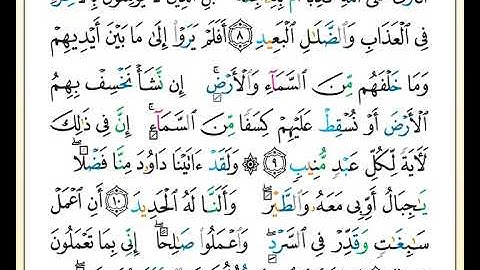 فِى ٱلْعَذَابِ وَٱلضَّلَـٰلِ ٱلْبَعِيدِ ٨ أَفَلَمْ يَرَوْا۟ إِلَىٰ مَا بَيْنَ أَيْدِيهِمْ
وَمَا خَلْفَهُم مِّنَ ٱلسَّمَآءِ وَٱلْأَرْضِ ۚ إِن نَّشَأْ نَخْسِفْ بِهِمُ
ٱلْأَرْضَ أَوْ نُسْقِطْ عَلَيْهِمْ كِسَفًا مِّنَ ٱلسَّمَآءِ ۚ إِنَّ فِى ذَٰلِكَ
لَـَٔايَةً لِّكُلِّ عَبْدٍ مُّنِيبٍ ٩ ۞ وَلَقَدْ ءَاتَيْنَا دَاوُۥدَ مِنَّا فَضْلًا ۖ
يَـٰجِبَالُ أَوِّبِى مَعَهُۥ وَٱلطَّيْرَ ۖ وَأَلَنَّا لَهُ ٱلْحَدِيدَ ١٠ أَنِ ٱعْمَلْ
سَـٰبِغَـٰتٍ وَقَدِّرْ فِى ٱلسَّرْدِ ۖ وَٱعْمَلُوا۟ صَـٰلِحًا ۖ إِنِّى بِمَا تَعْمَلُونَ